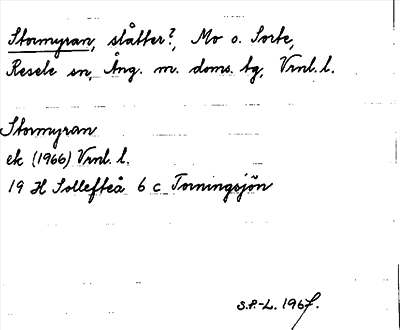 Stormyran, slåtter?, Mo o. Sorte,
Resele sn, Ång. m. doms. tg, Vrnl. l.
Stormyran
ek (1966) Vrnl. l.
19 H Sollefteå 6 c Torningsjön
S.P.-L. 1967.